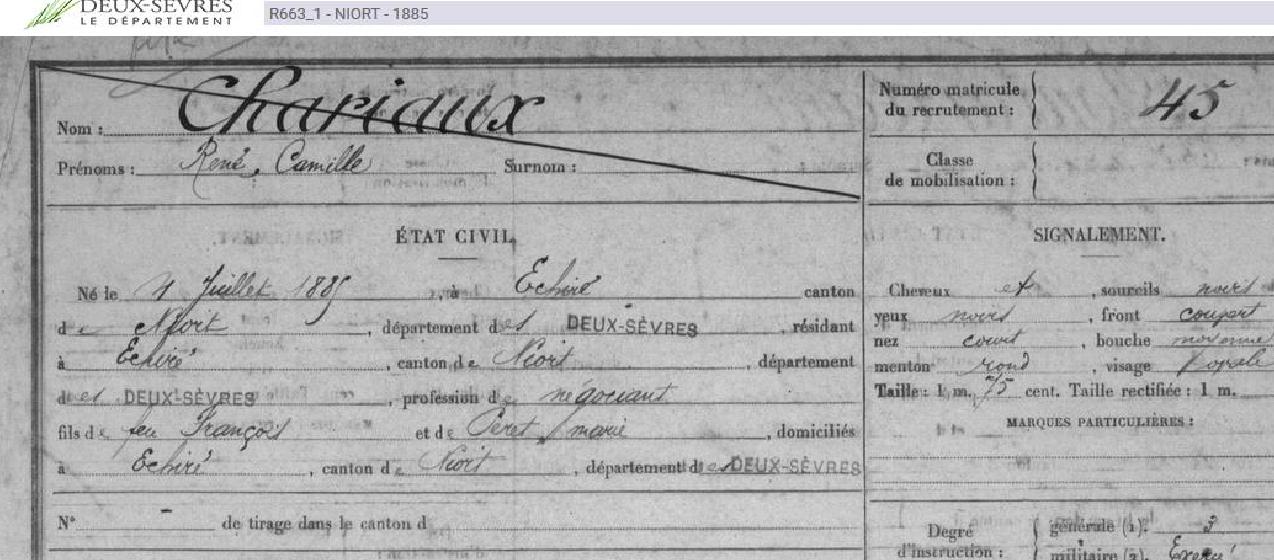 DEUX-SÈVRES
LE DÉPARTEMENT
R663_1 - NIORT - 1885
Nom : Chariaux
Prénoms : René, Camille Surnom :
Numéro matricule
du recrutement : 45
Classe
de mobilisation :
ÉTAT CIVIL
Né le 4 Juillet 1885, à Echiré canton
de Niort, département des DEUX-SÈVRES, résidant
à Echiré, canton de Niort, département
des DEUX-SÈVRES, profession de négociant
fils de feu François et de Peret marie, domiciliés
à Echiré, canton de Niort, département des DEUX-SÈVRES
N° - de tirage dans le canton d
SIGNALEMENT.
Cheveux et, sourcils noirs
yeux noirs, front
nez court, bouche moyenne
menton rond, visage
Taille : 1 m. 75 cent. Taille rectifiée : 1 m.
MARQUES PARTICULIÈRES :
Degré
d'instruction :
générale (1). 3
militaire (2).